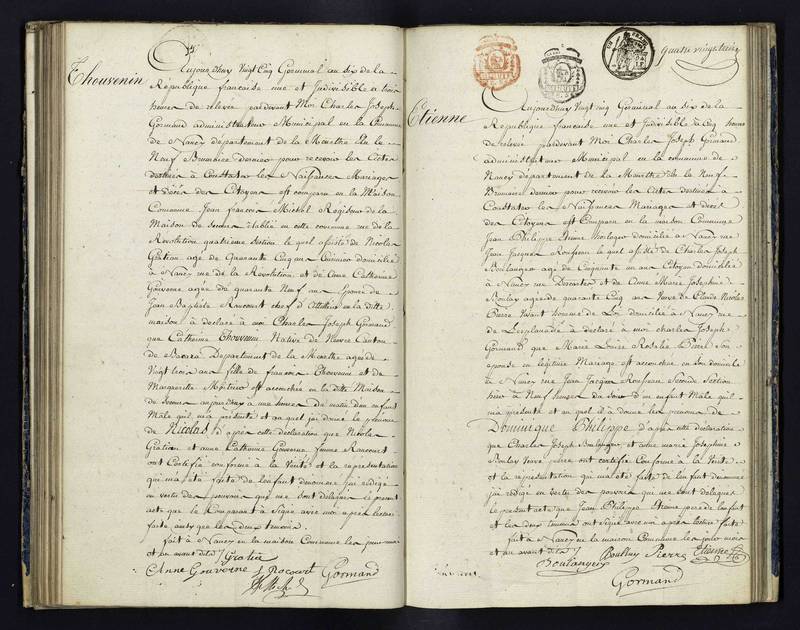 Thouvenin
Aujourd'huy Vingt Cinq Germinal an six de la
République francaise une et Indivisible a trois
heures de relevée pardevant Moi Charles Joseph
Gormand administrateur Municipal en la Commune
de Nancy département de la Meurthe Elu le
Neuf Brumaire dernier pour recevoir les Actes
destinés à Constater les Naissances Mariages
et Décès des Citoyens est comparu en la Maison
Commune Jean francois Michel Régisseur de la
Maison de Secours établie en cette commune rue de la
Révolution quatrieme Section lequel assisté de Nicolas
Gratien agé de Quarante Cinq ans domicilié
à Nancy rue de la Révolution et de Anne Catherine
Gouverne agée de quarante Neuf ans épouse de
Jean Baptiste Rancourt chef d'attellier en la ditte
maison à déclaré à moi Charles Joseph Gormand
que Catherine Thouvenin Native de Canton
de Département de la Meurthe agée de
Vingt trois ans fille de francois Thouvenin et de
Marguerite est accouchée en la ditte Maison
de Secours aujourd'huy à une heure Du matin d'un enfant
Male qu'il m'a présenté et auquel j'ai donné le prénom
de Nicolas d'après cette déclaration que Nicolas
Gratien et anne Catherine Gouverne femme Rancourt
ont Certifié conforme à la Vérité et la représentation
qui m'a été faite de l'enfant dénommé j'ai rédigé
en vertu des pouvoirs qui me sont délégués le présent
acte que le Comparant à Signé avec moi après lecture
faite ainsy que les deux temoins.
fait à Nancy en la maison Commune les jour mois
et an avant dits Gratien
Anne Gouverne Rocourt Gormand
quatre vingt treize
Etienne
Aujourd'huy Vingt cinq Germinal an six de la
République francaise une et Indivisible à Cinq heures
de relevée pardevant Moi Charles Joseph Gormand
administrateur Municipal en la commune de
Nancy département de la Meurthe Elu le Neuf
Brumaire dernier pour recevoir les Actes destinés à
Constater les Naissances Mariages et décès
des Citoyens est Comparu en la maison Commune
Jean Philippe Etienne horloger domicilié à Nancy rue
Jean Jacques Rousseau le quel assisté de Charles Joseph
Boulanger agé de Cinquante un ans Citoyen domicilié
à Nancy rue Descartes et de Anne Marie Josephine
Boulay agée de quarante Cinq ans Veuve de Claude Nicolas
Pierre Vivant homme de Loi domiciliée à Nancy rue
de l'esplanade à déclaré à moi charles Joseph
Gormand que Marie Louise Rosalie Pierre Son
épouse en légitime Mariage est accouchée en son domicile
à Nancy rue Jean Jacques Rousseau Seconde Section
hier à Neuf heures du Soir d'un enfant Male qu'il
m'a présenté et auquel il à donné les prenoms de
Dominique Philippe d'après cette déclaration
que Charles Joseph Boulanger et anne marie Josephine
Boulay Veuve pierre ont certifié Conforme à la Vérité
et la représentation qui m'a été faite de l'enfant dénommé
j'ai rédigé en Vertu des pouvoirs qui me sont délégués
le présent acte que Jean Philippe Etienne pere de l'enfant
et les deux temoins ont signé avec moi après lecture faite
fait à Nancy en la maison Commune les jour mois
et an avant dits Boullay Pierre Etienne
Boulanger
Gormand